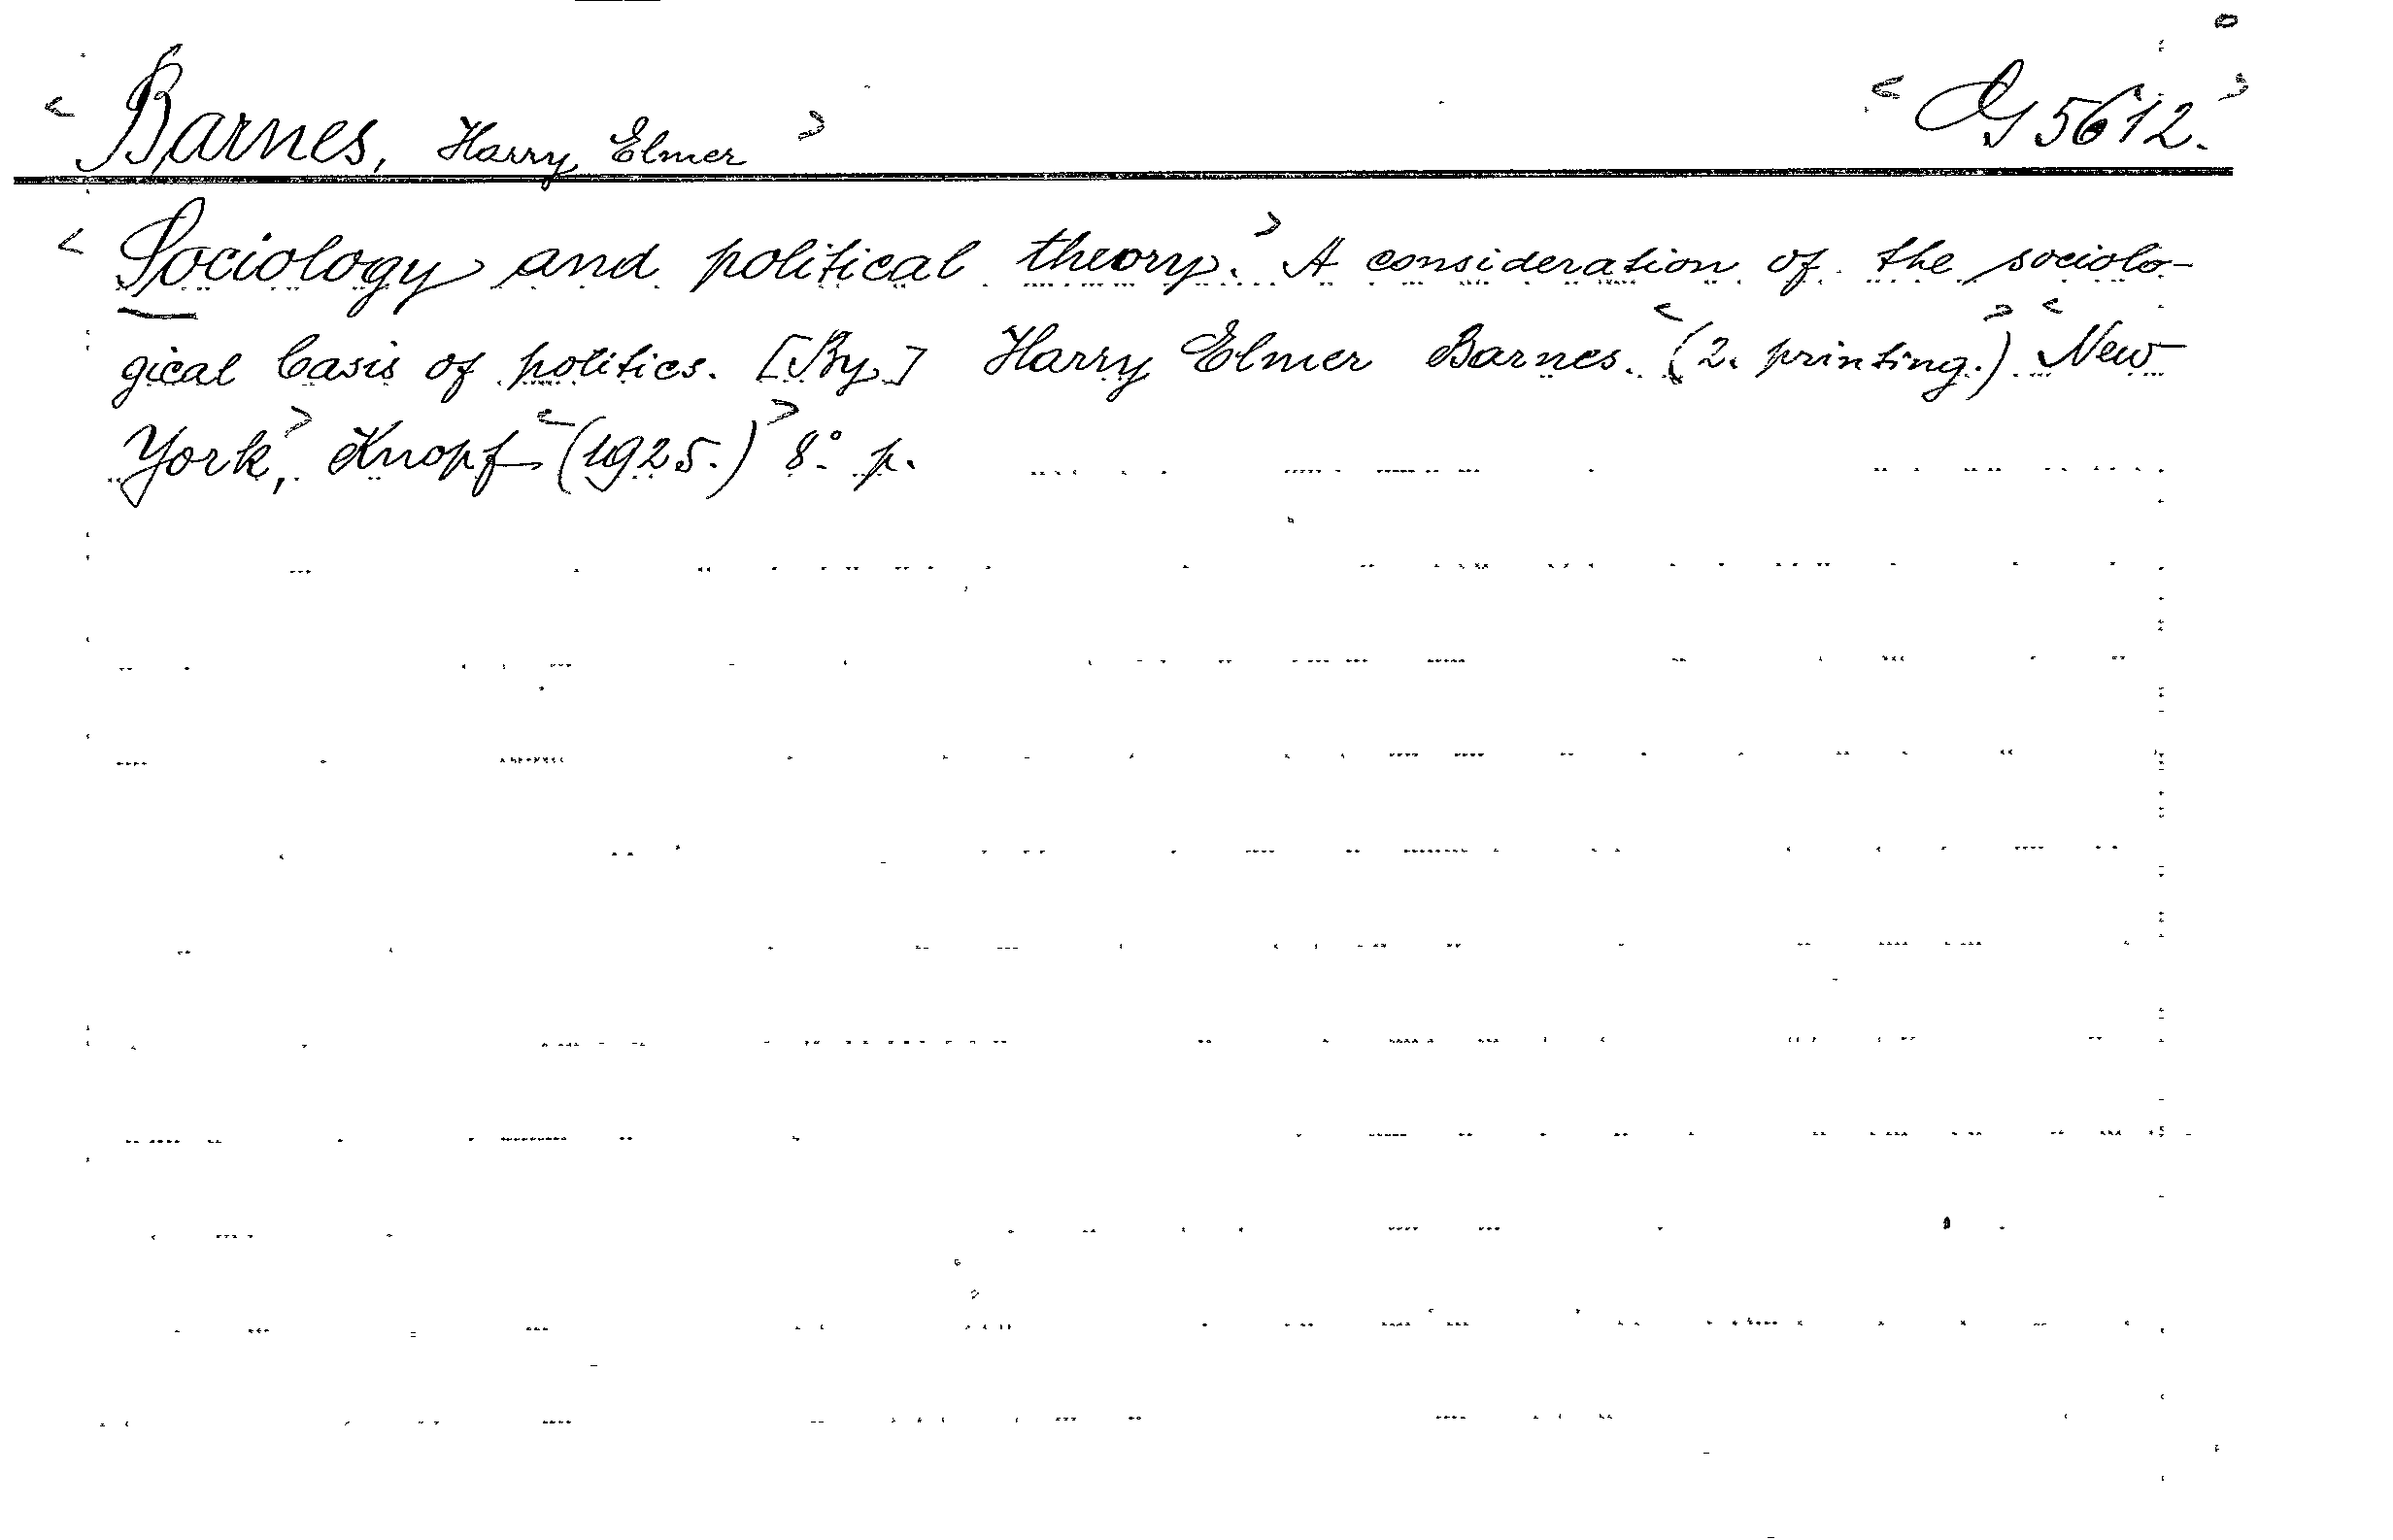 <Barnes, Harry Elmer> <G 5612.>
<Sociology and political theory.> A consideration of the sociolo-
gical basis of politics. [By] Harry Elmer Barnes. <(2. printing.)> <New
York,> Knopf <(1925.)> 8° p.